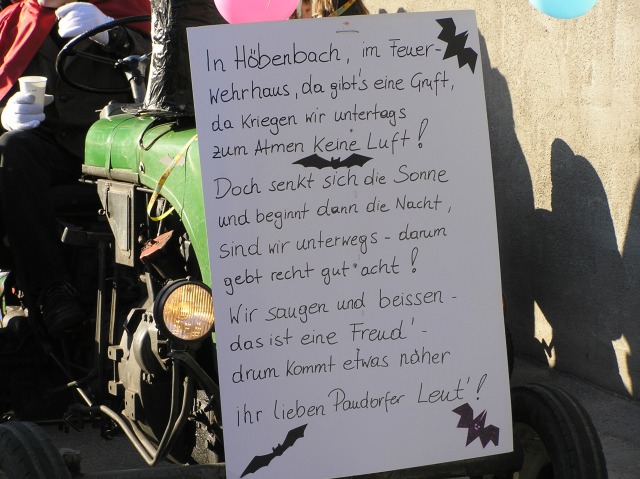 In Höbenbach, im Feuer-
wehrhaus, da gibt's eine Gruft,
da Kriegen wir untertags
zum Atmen Keine Luft!
Doch senkt sich die Sonne
und beginnt dann die Nacht,
sind wir unterwegs - darum
gebt recht gut acht!
Wir saugen und beissen -
das ist eine Freud' -
drum kommt etwas näher
ihr lieben Paudorfer Leut'!